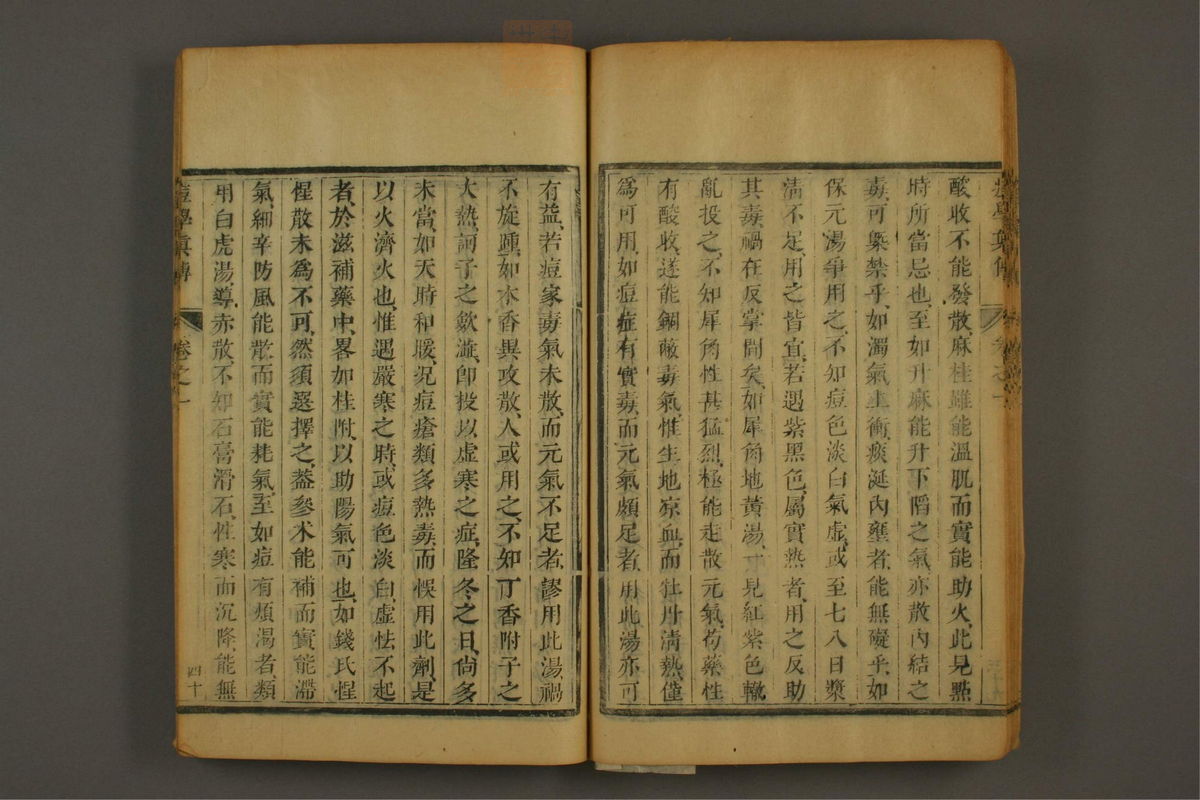 酸收不能發散、麻桂雖能溫肌而實能助火、此見點
時所當忌也、至如升麻能升下䧟之氣、亦散內結之
毒、可槩禁乎、如濁氣上衝、痰涎內壅者、能無礙乎、如
保元湯爭用之、不知痘色淡白氣虛、或至七八日漿
清不足、用之皆宜、若遇紫黑色、屬實熱者、用之反助
其毒、禍在反掌間矣、如犀角地黃湯、一見紅紫色輙
亂投之、不知犀角性甚猛烈、極能走散元氣、芍藥性
有酸收、遂能錮蔽毒氣、惟生地凉血、而牡丹淸熱、僅
爲可用、如痘症有實毒、而元氣頗足者、用此湯亦可
有益、若痘家毒氣未散、而元氣不足者、謬用此湯、禍
不旋踵、如木香異攻散、人或用之、不知丁香附子之
大熱、訶子之歛澁、卽投以虛寒之症、隆冬之日、尙多
未當、如天時和暖、況痘瘡類多熱毒、而悞用此劑、是
以火濟火也、惟遇嚴寒之時、或痘色淡白、虛怯不起
者、於滋補藥中、畧如桂附、以助陽氣可也、如錢氏惺
惺散未爲不可、然須選擇之、葢參术能補而實能滯
氣、細辛防風能散、而實能耗氣、至如痘有煩渴者、類
用白虎湯、導赤散、不知石膏滑石、性寒而沉降、能無
痘學眞傳 卷之一
四十